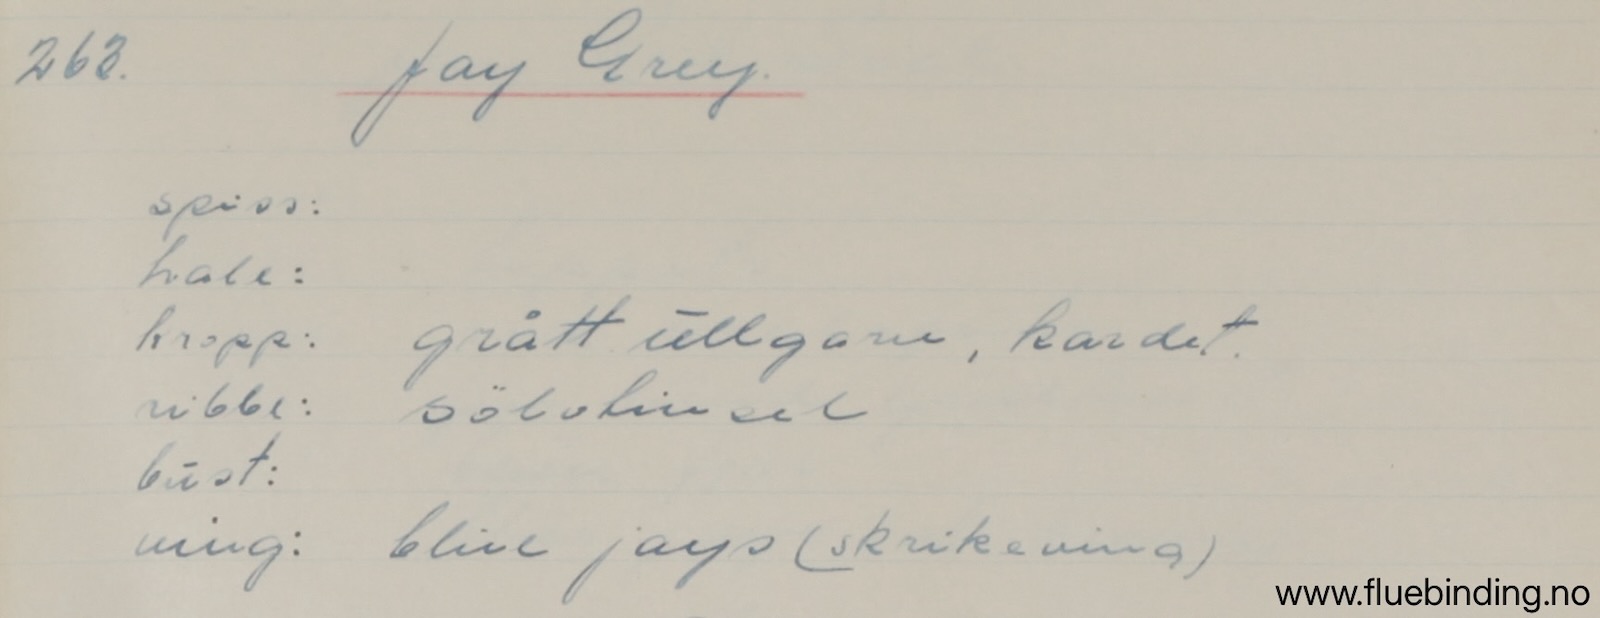 263. Jay Grey.
spiss:
hale:
kropp: grått ullgarn, kardet.
ribbe: sölvtinsel
bust:
ving: blue jays (skrikeving)
www.fluebinding.no